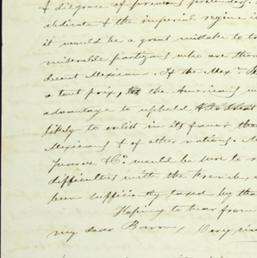 & disgrace of
dedicate of the imperial regime i
it would be a great mistake to
miserable partizans who are the
decent Mexicans. If the Mex
a tout prix, the Americans
advantage to uphold
likely to enlist in its favor tho
Mexicans & of other nations.
would be
difficulties with the French,
been sufficiently taxed by tha
Hoping to hear from
my dear Baron, Very sin